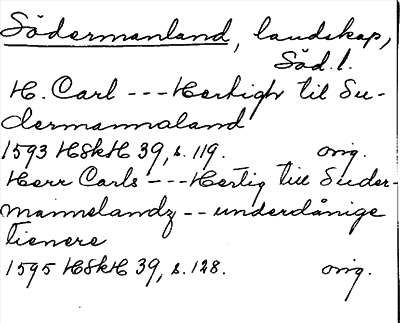 Södermanland, landskap,
Söd.l.
H. Carl --- Hertigh til Su-
dermannaland
1593 HSkH 39, s. 119. orig.
Herr Carls --- Hertig till Suder-
mannelandz -- underdånige
tienere
1595 HSkH 39, s. 128. orig.